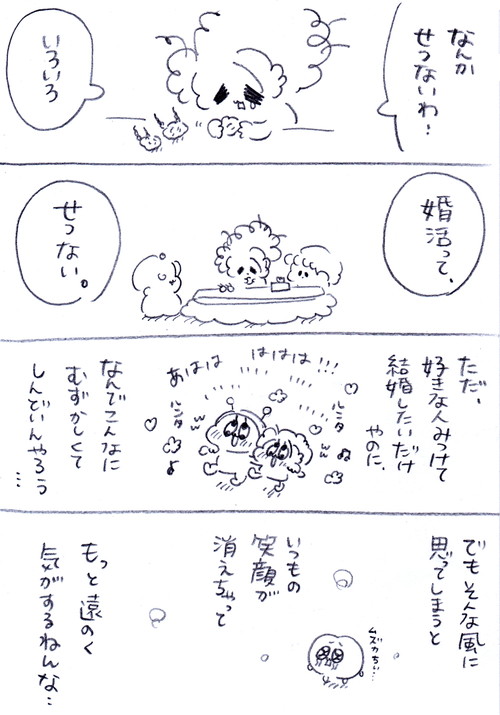 なんか
せつないわ…
いろいろ
婚活って、
せつない。
ただ、
好きな人みつけて
結婚したいだけ
やのに、
あはは
ははは!!!
ルンタ
ルンタ
なんでこんなに
むずかしくて
しんどいんやろう
…
でもそんな風に
思ってしまうと
ムズカちい…
いつもの
笑顔が
消えちゃって
もっと遠のく
気がするねんな…